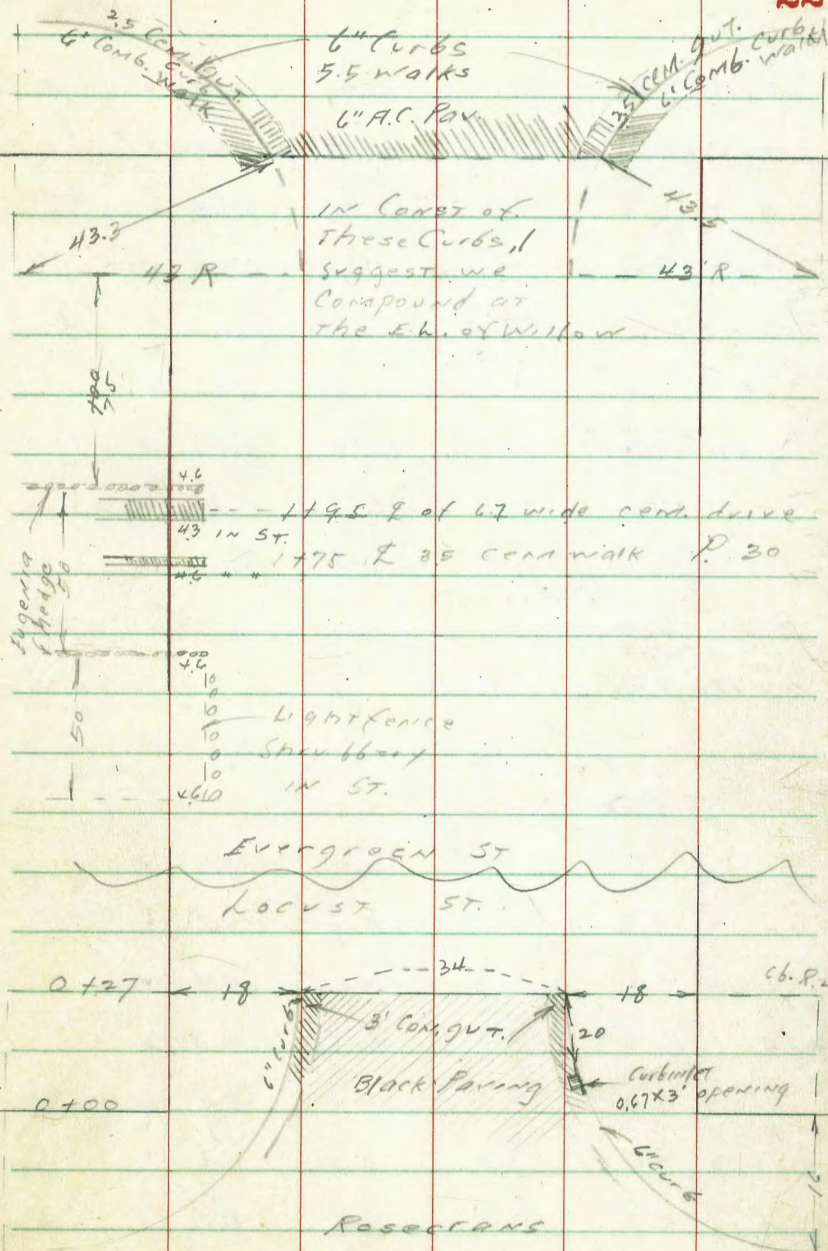 22
2.5 Cem. Gut.
6" Comb. Curb
Walk
6" Curbs
5.5 walks
6" A.C. Pav.
2.5' Cem. Gut.
6" Comb. Curb
Walk
43.3
43.5
In Const of
These Curbs, I
Suggest we
Compound at
The E.L. of Willow
43 R
43' R
75
4.6
1+95 ℄ of 6.7 wide cem. drive
4.3 IN ST.
1+75 ℄ 3.5 cem walk P. 30
4.6 " "
Eugenia
hedge
50
4.6
50
Light fence
Shrubbery
IN ST.
4.6
Evergreen ST
Locust ST.
34
0+27
18
18
Cb. R.
3' Con. gut.
20
6" Curb
Black Paving
Curb inlet
0.67 x 3' opening
0+00
6" Curb
Rosecrans